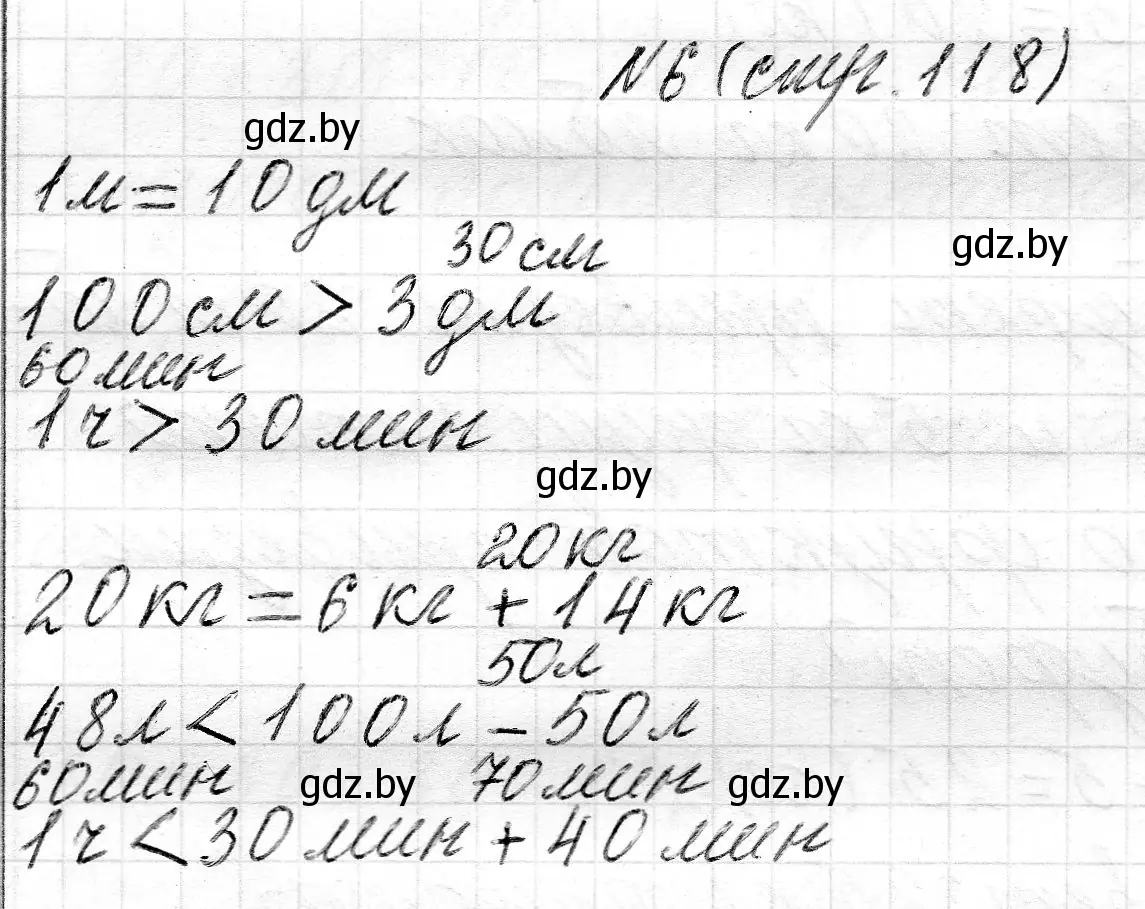 №6 (стр. 118)
gdz.by
1м = 10 дм
30 см
gdz.by
100 см > 3 дм
60 мин
1 ч > 30 мин
gdz.by
20 кг
20 кг = 6 кг + 14 кг
50 л
48 л < 100 л - 50 л
60 мин gdz.by 70 мин gdz.by
1 ч < 30 мин + 40 мин